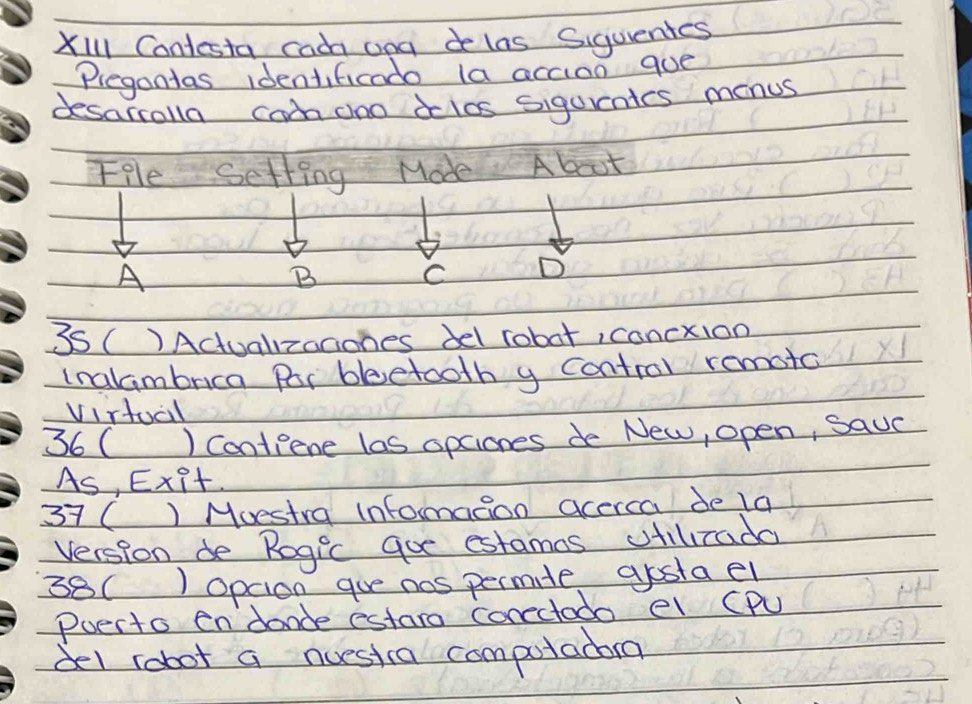 XIII Contesta cada una de las Siguientes
Pregontas identificado la accion que
desarrolla cada uno de los siguientes menus
File Setting Mode About
A B C D
35 ( ) Actualizaciones del robot, conexion
inalambrica Por bleetooth y control remoto
virtual
36 ( ) contiene las opciones de New, open, Save
As, Exit.
37 ( ) Muestra informacion acerca de la
version de Rogic que estamos utilizado
38 ( ) opcion que nos permite ajusta el
puerto en donde estara conectado el CPU
del robot a nuestra computadora